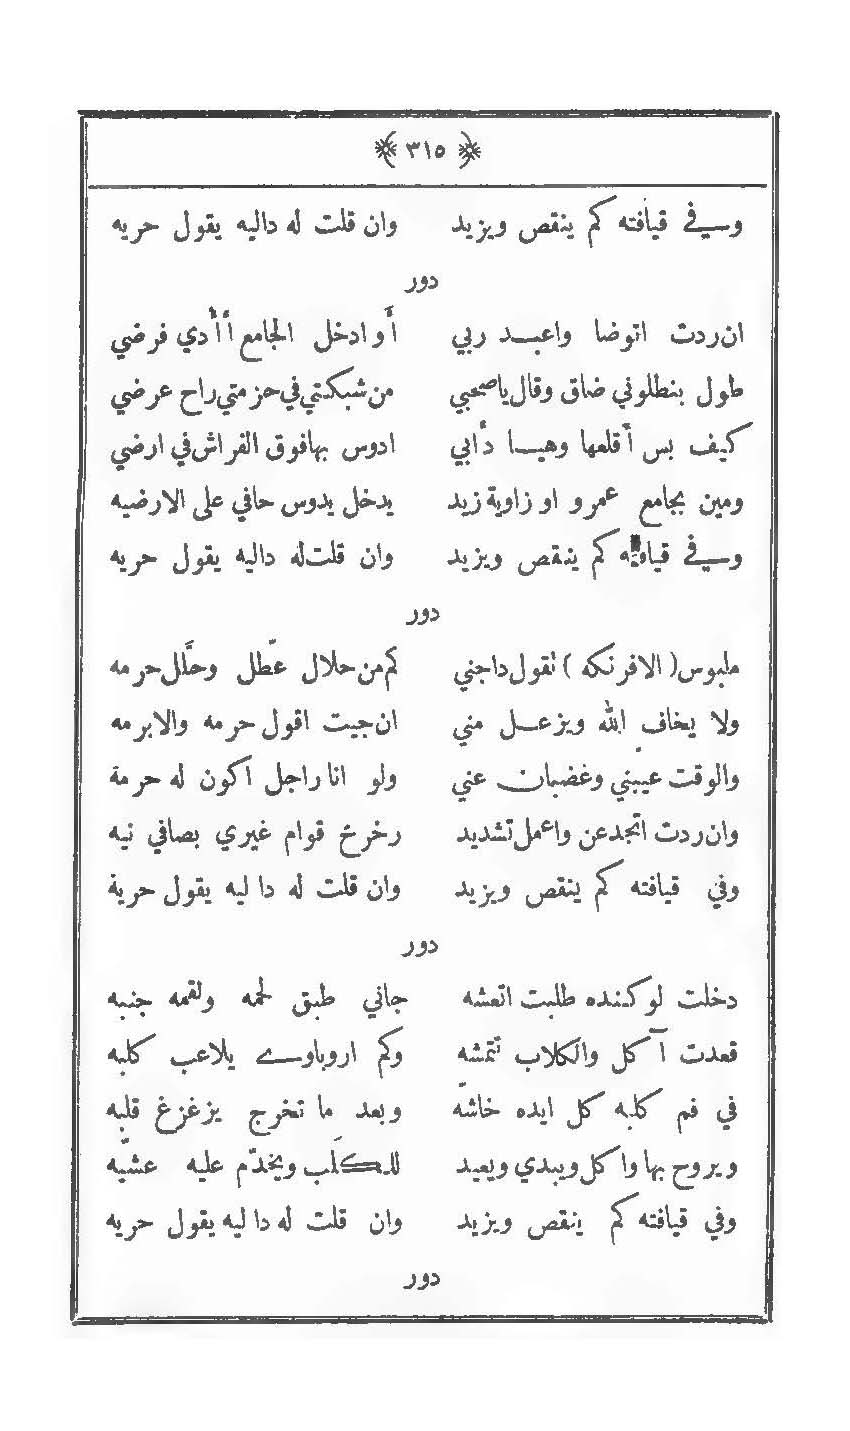 ﴿ ٣١٥ ﴾
وفي قيافته كم ينقص ويزيد وان قلت له داليه يقول حريه
دور
ان ردت اتوضا واعبد ربي أو ادخل الجامع أأدي فرضي
طول بنطلوني ضاق وقال ياصحبي من شبكتي في حزمتي راح عرضي
كيف بس أقلعها وهيا دأبي ادوس بها فوق الفراش في ارضي
ومين بجامع عمرو او زاوية زيد يدخل يدوس حافي على الارضيه
وفي كم ينقص ويزيد وان قلت له داليه يقول حريه
دور
ملبوس (الافرنكه) تقول داجني كم من حلال عطّل وحلَّل حرمه
ولا يخاف الله ويزعل مني ان جيت اقول حرمه والابرمه
والوقت عيبني وغضبان عني ولو انا راجل اكون له حرمة
وان ردت اتجدعن واعمل تشديد رخرخ قوام غيري بصافي نيه
وفي قيافته كم ينقص ويزيد وان قلت له دا ليه يقول حرية
دور
دخلت لوكنده طلبت اتعشه جاني طبق لحمه ولقمه جنبه
قعدت آكل والكلاب تتمشه وكم اروباوي يلاعب كلبه
في فم كلبه كل ايده خاشّه وبعد ما تخرج يزغزغ قلبه
ويروح بها واكل ويبدي ويعيد للكلَب ويخدّم عليه عشيّه
وفي قيافته كم ينقص ويزيد وان قلت له دا ليه يقول حريه
دور